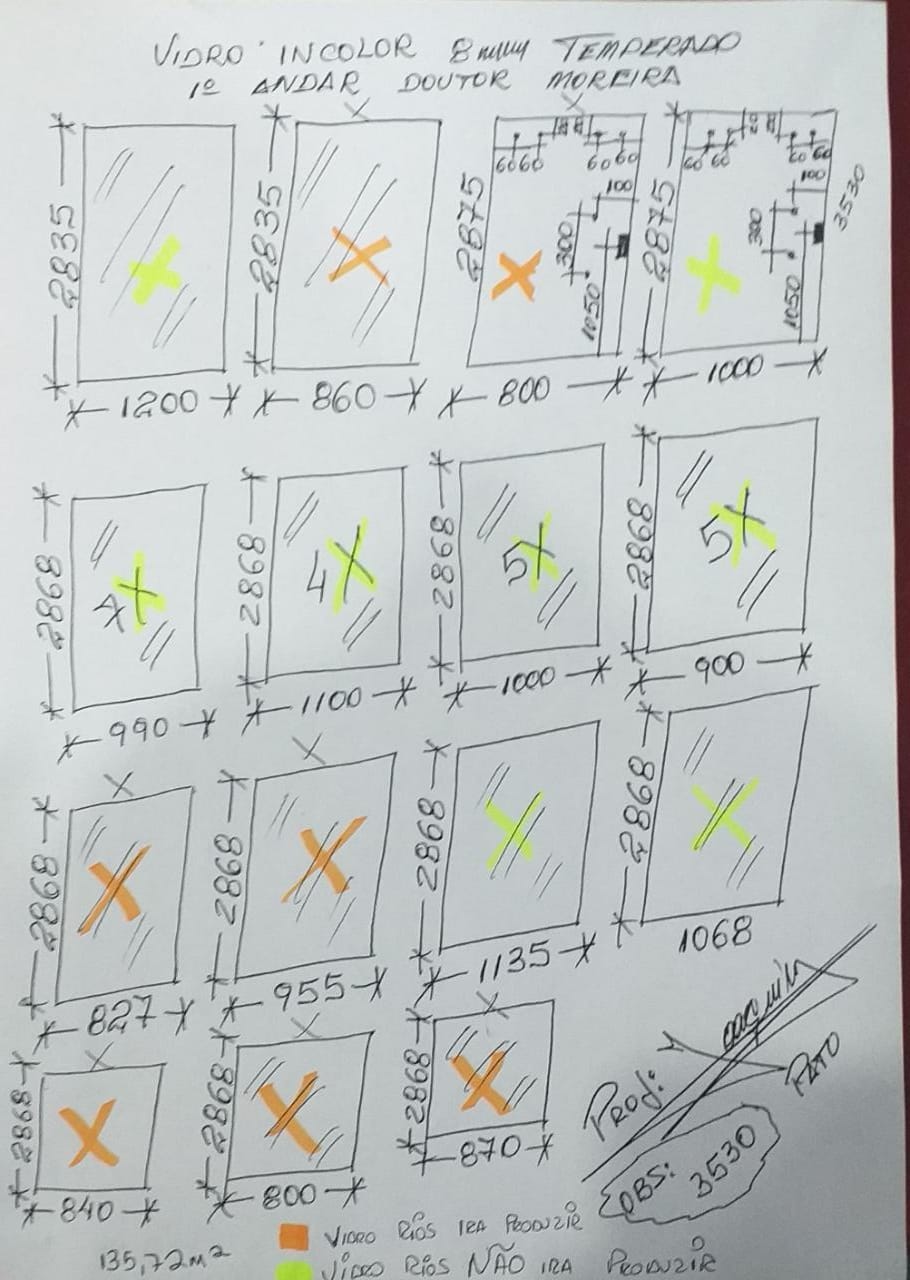 VIDRO INCOLOR 8mm TEMPERADO
1º ANDAR DOUTOR MOREIRA
2835
1200
2835
860
2875
60 60
60 60
100
300
1050
800
2875
60 60
60 60
100
300
1050
3530
1000
2868
990
2868
4X
1100
2868
5X
1000
2868
5X
900
2868
827
2868
955
2868
1135
2868
1068
2868
840
2868
800
2868
870
PROJ:
PATO
OBS:
3530
VIDRO RIOS IRA PRODUZIR
135,72m²
VIDRO RIOS NÃO IRA PRODUZIR